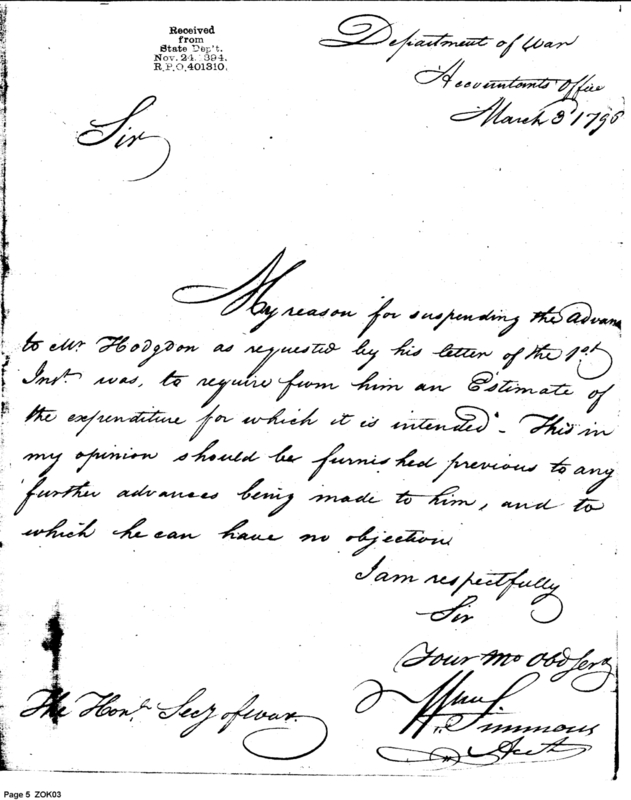 Received
from
State Dep't.
Nov. 24, 1894.
R.P.O. 401310.
Department of War
Accountants Office
March 3d 1796
Sir
My reason for suspending the advan
to Mr. Hodgdon as requested by his letter of the 1st
Inst. was, to require from him an Estimate of
the expenditure for which it is intended - This in
my opinion should be furnished previous to any
further advances being made to him, and to
which he can have no objection
I am respectfully
Sir
Your Mo Obd Serv
Wm Simmons
Acct
The Honl. Secy of war.
Page 5 ZOK03